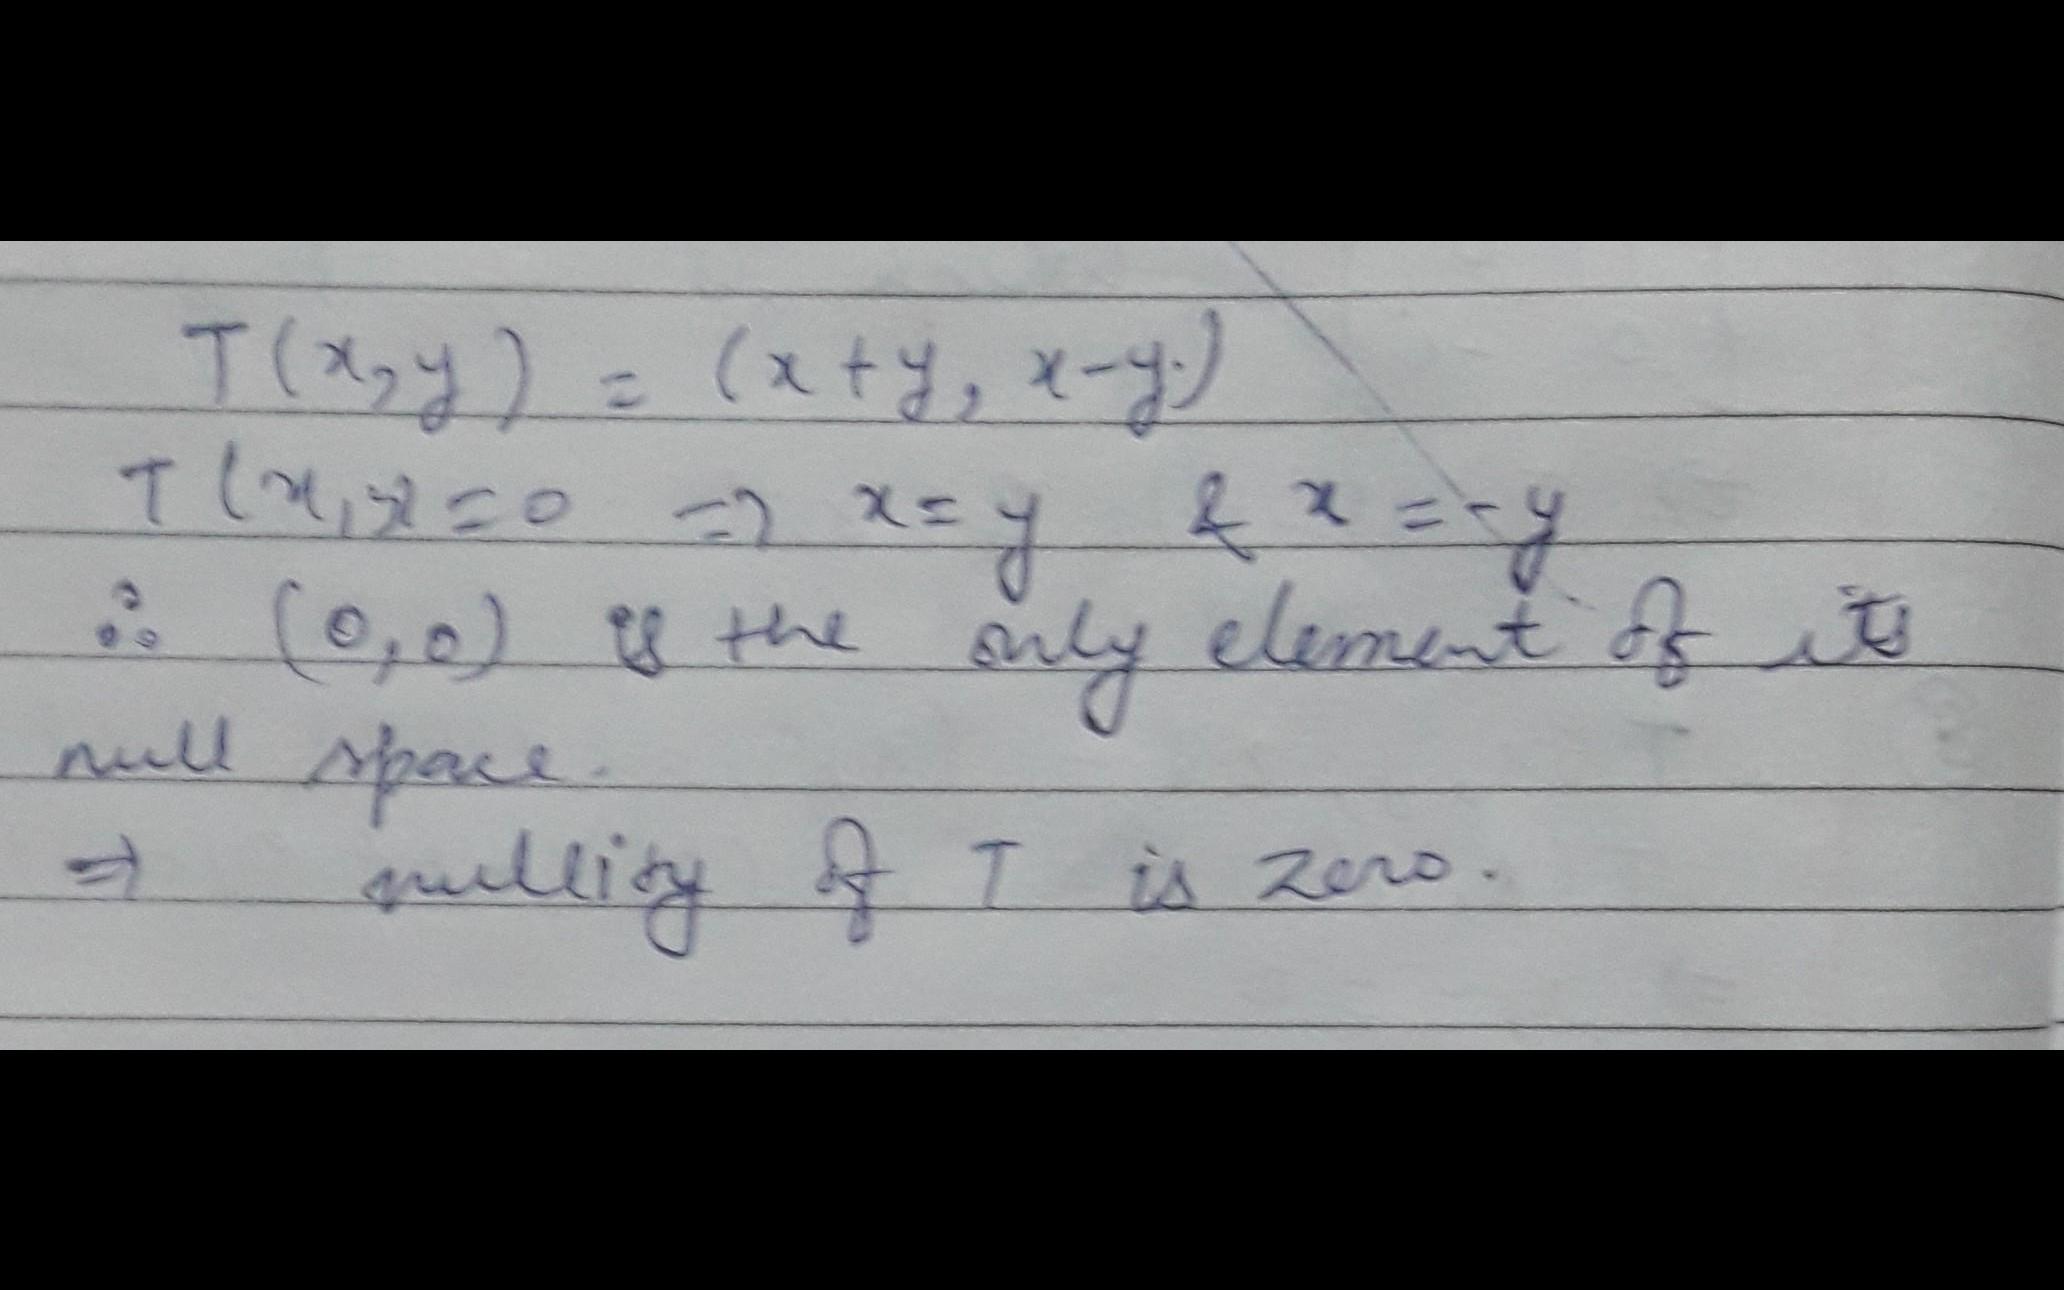 T(x,y) = (x+y, x-y)
T(x,y)=0 => x=y & x=-y
∴ (0,0) is the only element of its
null space.
=> nullity of T is zero.